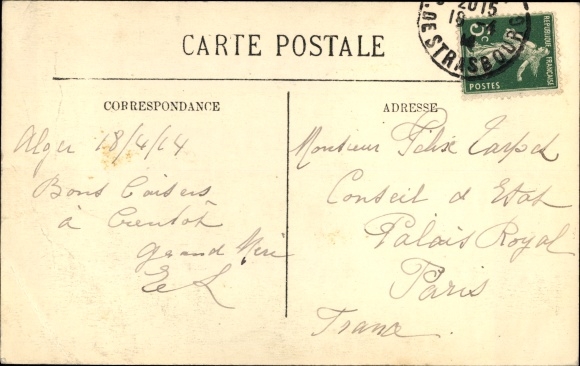 CARTE POSTALE
2015
18-4
14
R. DE STRASBOURG
5c
POSTES
FRANÇAISE
CORRESPONDANCE
Alger 18/4/14
Bons Baisers
à bientôt
grand Mère
E L
ADRESSE
Monsieur Félix
Conseil d Etat
Palais Royal
Paris
France